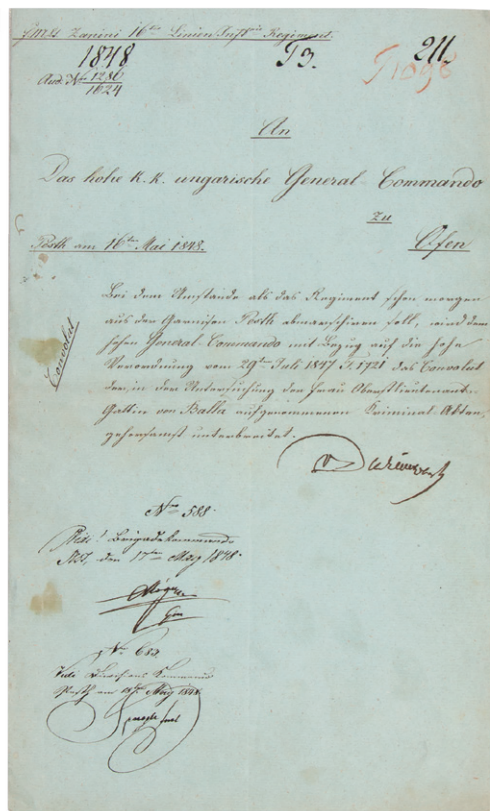 FML Zanini 16ten Linien Inftie Regiment.
1848 T3. 211.
Aud. No 1286
1624
An
Das hohe k. k. ungarische General-Commando
zu
Pesth am 16ten Mai 1848. Ofen
Convolut
Bei dem Umstande als das Regiment schon morgen
aus der Garnison Pesth abmarschiren soll, wird dem
hohen General-Commando mit Bezug auf die hohe
Verordnung vom 29ten Juli 1847 J. 1721 das Convolut
der in der Untersuchung der Frau Oberstlieutenant-
Gattin von Balla aufgenommenen Kriminal-Akten
gehorsamst unterbreitet.
No 588.
Vidi! Brigadekommando
Pest, den 17ten May 1848.
No 682
Vidi Divisions Kommando
Pesth am May 1848